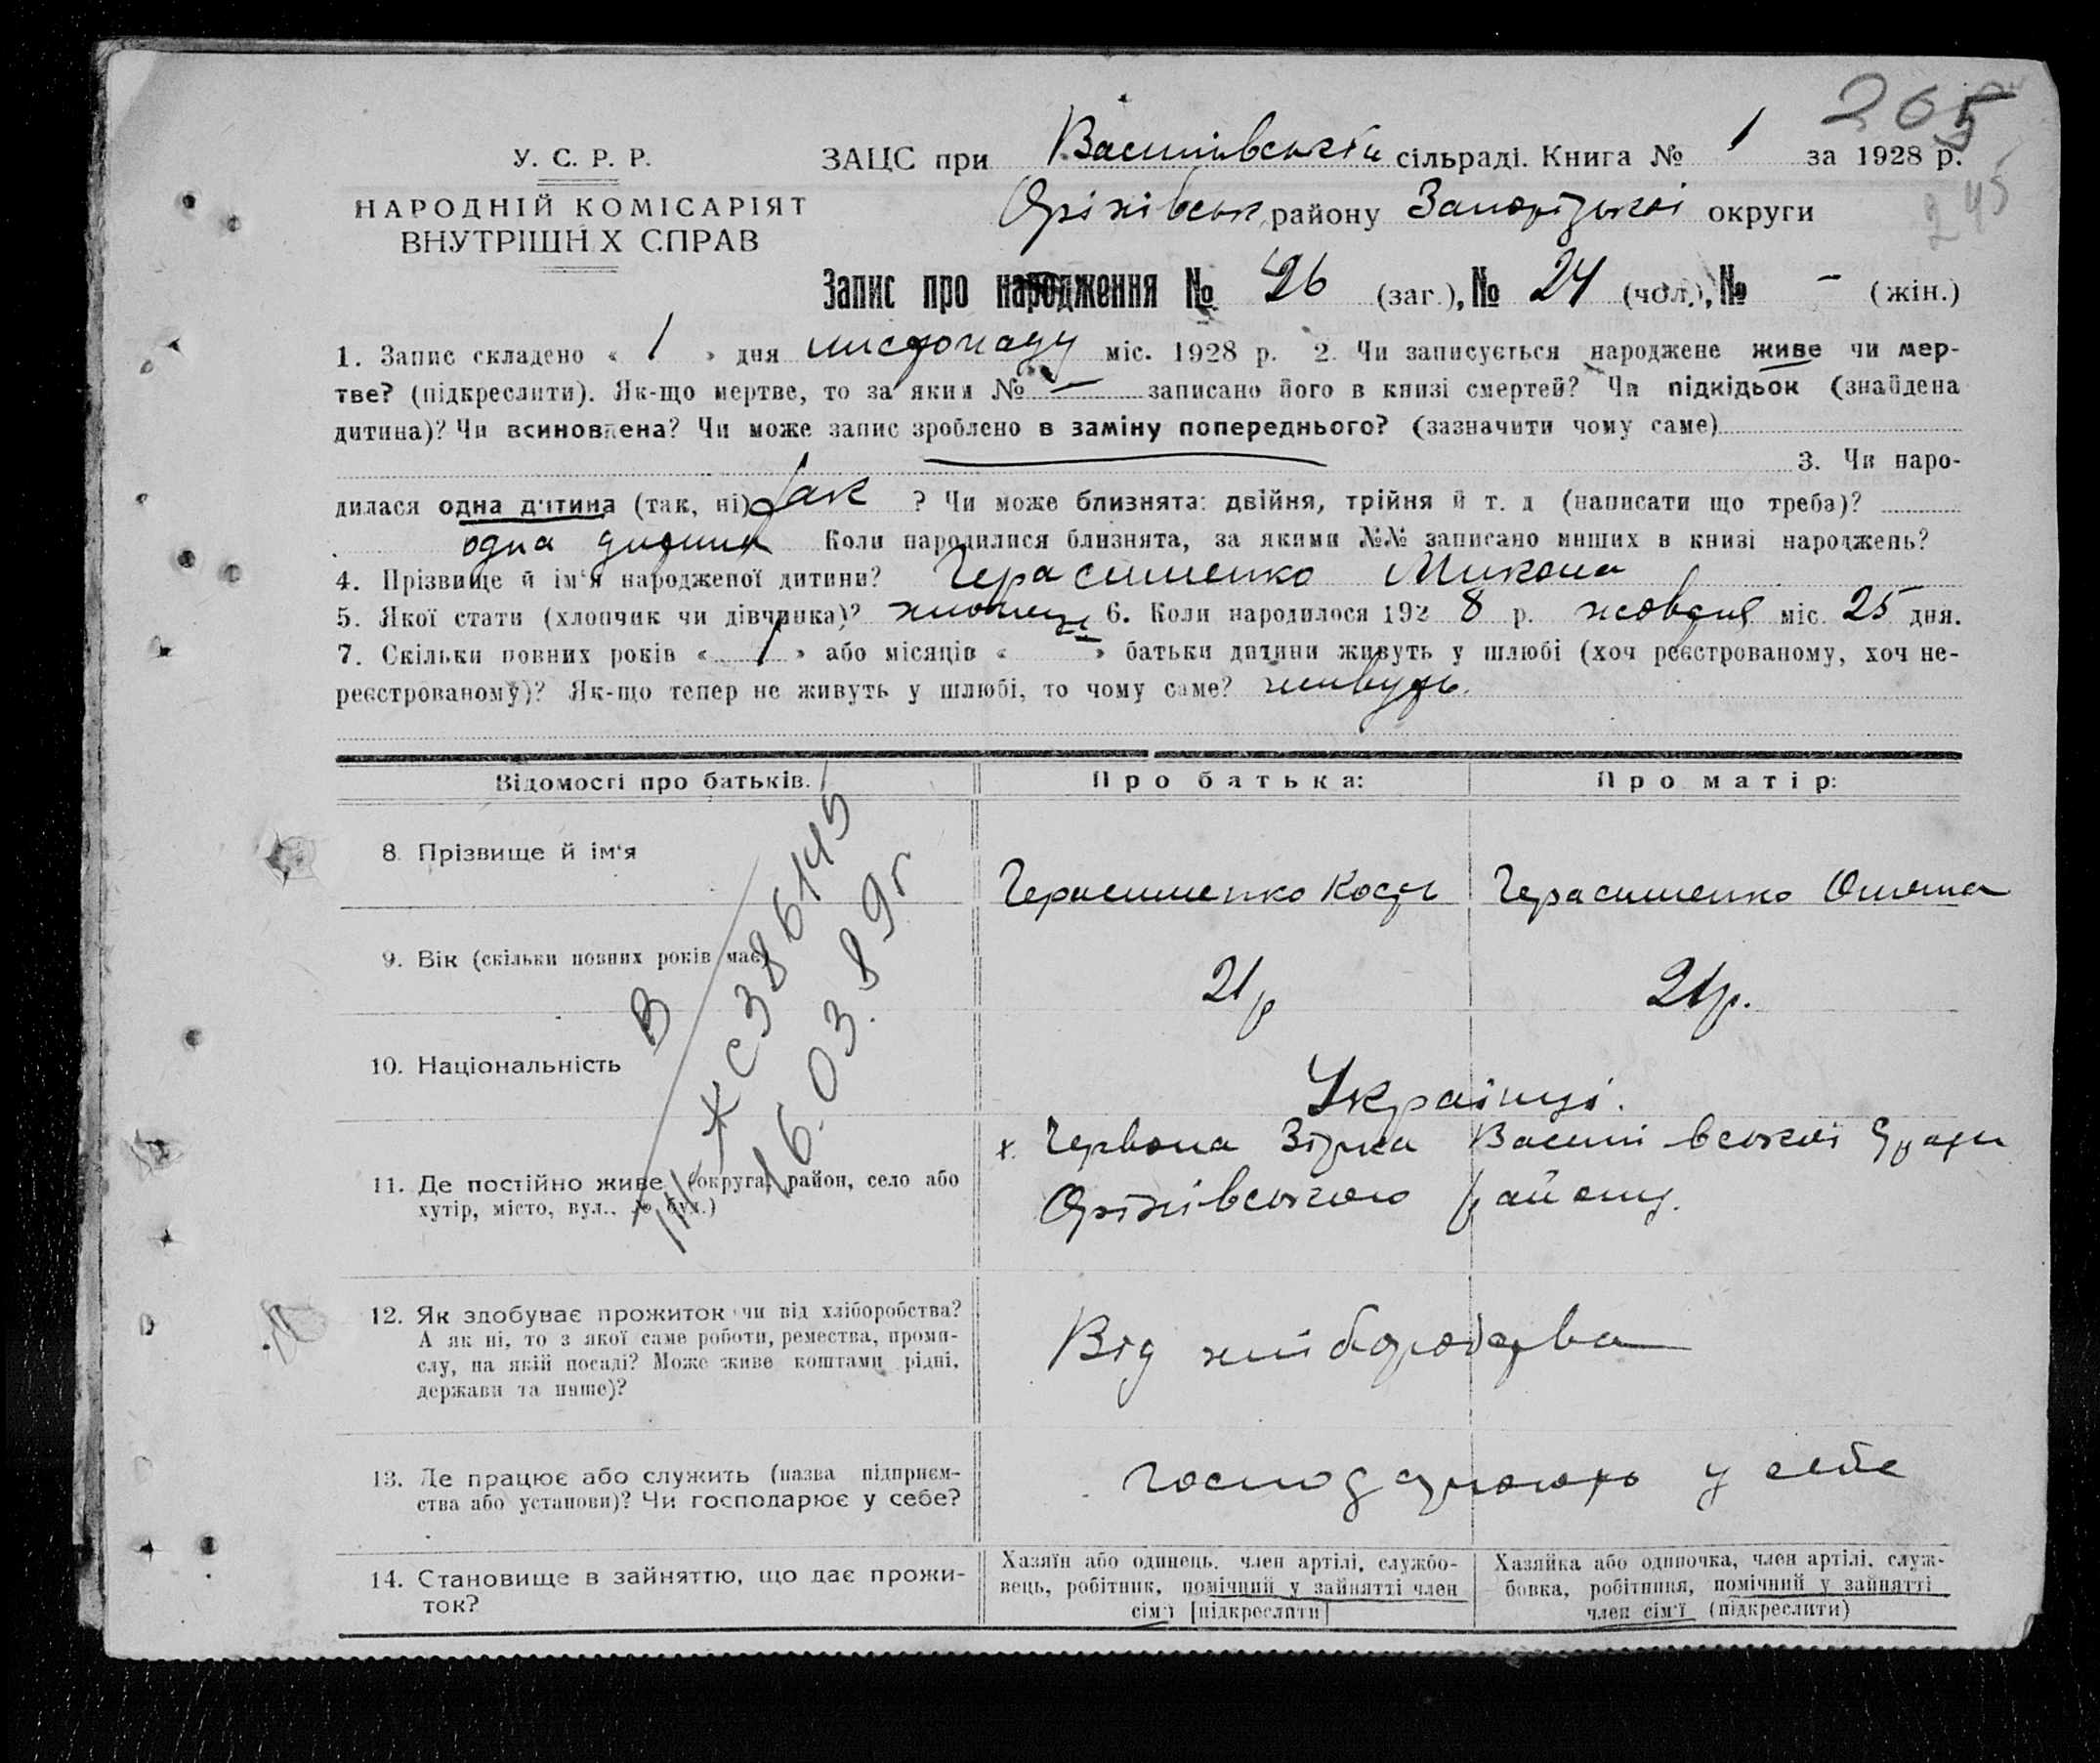 265
245
У. С. Р. Р.
НАРОДНІЙ КОМІСАРІЯТ
ВНУТРІШН Х СПРАВ
ЗАЦС при Василівській сільраді. Книга № 1 за 1928 р.
Оріхівськ. району Запорізької округи
Запис про народження № 26 (заг.), № 24 (чол.), № - (жін.)
1. Запис складено « 1 » дня листопаду міс. 1928 р. 2. Чи записується народжене живе чи мер-
тве? (підкреслити). Як-що мертве, то за яким № — записано його в книзі смертей? Чи підкідьок (знайдена
дитина)? Чи всиновлена? Чи може запис зроблено в заміну попереднього? (зазначити чому саме)
3. Чи наро-
дилася одна дитина (так, ні) Так ? Чи може близнята: двійня, трійня й т. д (написати що треба)?
одна дитина Коли народилися близнята, за якими №№ записано инших в книзі народжень?
4. Прізвище й ім'я народженої дитини? Герасименко Микола
5. Якої стати (хлопчик чи дівчинка)? хлопець 6. Коли народилося 192 8 р. жовтня міс. 25 дня.
7. Скільки повних років « 1 » або місяців « — » батьки дитини живуть у шлюбі (хоч реєстрованому, хоч не-
реєстрованому)? Як-що тепер не живуть у шлюбі, то чому саме? живуть.
Відомості про батьків. Про батька: Про матір:
8. Прізвище й ім'я Герасименко Кость Герасименко
9. Вік (скільки повних років має) 21 р 21 р.
10. Національність Українці.
11. Де постійно живе (округа, район, село або
хутір, місто, вул., № буд.)
х. Червона Зірка Василівської С/ради
Оріхівського району.
В
III-ЖС 386145
16.03.89г
12. Як здобуває прожиток чи від хліборобства?
А як ні, то з якої саме роботи, ремества, проми-
слу, на якій посаді? Може живе коштами рідні,
держави та инше)?
Від хліборобства
13. Де працює або служить (назва підприєм-
ства або установи)? Чи господарює у себе?
господарюють у себе
14. Становище в зайняттю, що дає прожи-
ток?
Хазяїн або одинець, член артілі, службо-
вець, робітник, помічний у зайнятті член
сім'ї [підкреслити]
Хазяйка або одиночка, член артілі, служ-
бовка, робітниця, помічний у зайнятті
член сім'ї (підкреслити)